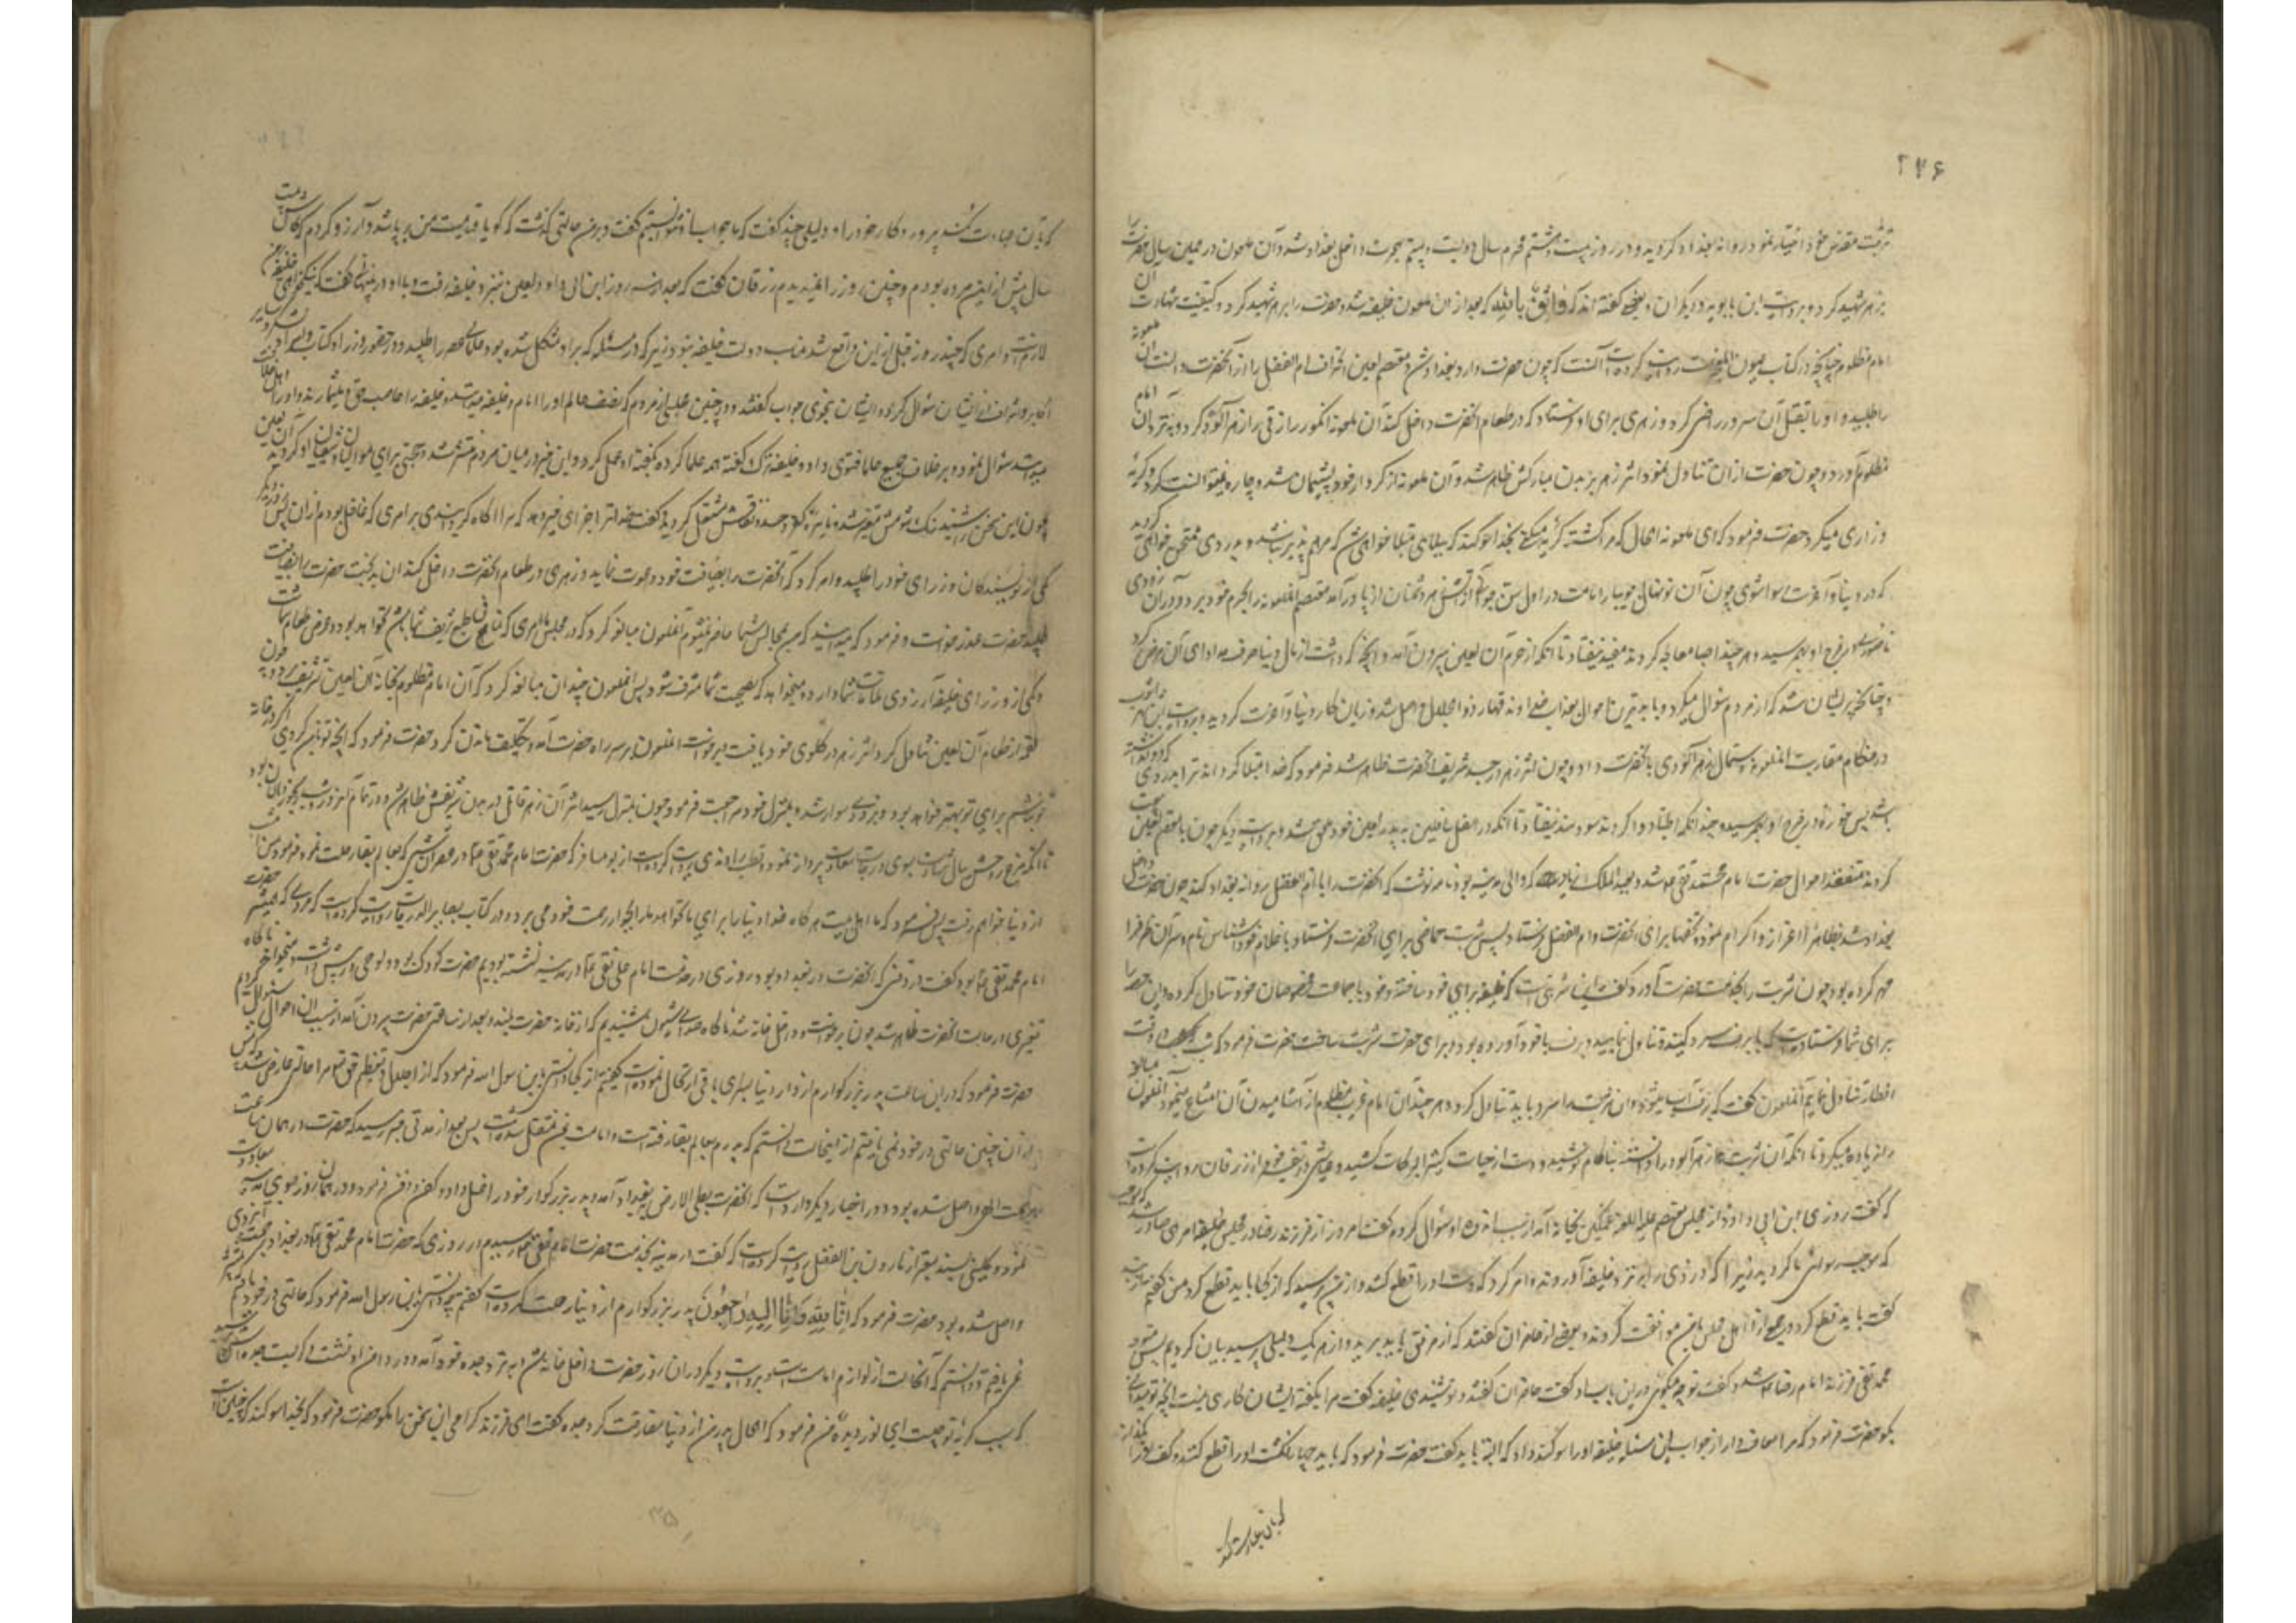 ۲۴۶
تربت مقدس خود اختیار نمود روانه بغداد گردید و در روز بیست و هشتم محرم سال دویست و بیستم هجرت داخل بغداد شد و آن ملعون در همین سال حضرت را
بزهر شهید کرد و بروایت ابن بابویه و دیگران و بعضی گفته اند که واثق بالله که بعد از ان ملعون خلیفه شد حضرت را بزهر شهید کرد و کیفیت شهادت آن
امام مظلوم چنانچه در کتاب عیون المعجزات روایت کرده است آنست که چون حضرت وارد بغداد شد و معتصم لعین انحراف ام الفضل را از آنحضرت دانست آن ملعونه
را طلبید و او را بقتل آن سرور راضی کرد و زهری برای او فرستاد که در طعام انحضرت داخل کند آن ملعونه انگور رازقی را زهر آلود کرد و به نزد آن امام
مظلوم آورد و چون حضرت از ان تناول نمود اثر زهر در بدن مبارکش ظاهر شد و آن ملعونه از کردار خود پشیمان شد و چاره نمیتوانست کرد و گریه
و زاری میکرد حضرت فرمود که ای ملعونه الحال که مرا کشته گریه میکنی بخدا سوگند که ببلائی مبتلا خواهی شد که مرهم پذیر نباشد و بدردی ممتحن خواهی گردید
که در دنیا و آخرت رسوا شوی چون آن نونهال جویبار امامت در اول سن جوانی از آتش زهر دشمنان از پا در آمد معتصم آن ملعونه را بحرم خود برد و در آن زودی
ناصوری در فرج او بهم رسید و هر چند اطبا معالجه کردند مفید نیفتاد تا آنکه از حرم آن لعین بیرون آمد و آنچه که داشت از مال دنیا صرف مداوای آن مرض کرد
و چنان پریشان شد که از مردم سوال میکرد و با بدترین احوال بعذاب خداوند قهار ذو الجلال واصل شد و زیان کار دنیا و آخرت گردید و بروایت ابن شهر آشوب
در هنگام مقاربت آن ملعونه دستمال زهر آلودی بانحضرت داد و چون اثر زهر در جسد شریف انحضرت ظاهر شد فرمود که خدا مبتلا گرداند ترا بدردی که دوا نداشته
باشد پس خوره در فرج او بهم رسید و چندانکه اطبا دوا کردند سود مند نیفتاد تا آنکه در اسفل سافلین به پدر لعین خود ملحق شد و بروایت دیگر چون با معتصم لعین بیعت
کردند متفقد احوال حضرت امام محمد تقی شد و بعبد الملک زیات که والی مدینه بود نامه نوشت که انحضرت را با ام الفضل روانه بغداد کند چون حضرت داخل
بغداد شد بظاهر اعزاز و اکرام نمود و تحفها برای انحضرت و ام الفضل فرستاد پس شربت حماضی برای انحضرت فرستاد با غلام خود اشناس نام و سر آن ظرف را
مهر کرده بود چون شربت را بخدمت حضرت آورد و گفت این شربتی است که خلیفه برای خود ساخته و خود با جماعت مخصوصان خود تناول کرده و این حصه را
برای شما فرستاده است که با برف سرد کنید و تناول نمایید و برف با خود آورده بود و برای حضرت شربت ساخت حضرت فرمود که شب وقت
افطار تناول نمایم آن ملعون گفت که برف آب میشود و ان شربت را سرد باید تناول کرد و هر چند آن امام غریب مظلوم از آشامیدن آن امتناع مینمود آن ملعون مبالغه
را زیاده میکرد تا آنکه آن شربت زهر آلود را دانسته بناکام نوشید و دست از حیات کثیر البرکات کشید و عیاشی در تفسیر خود از زرقان روایت کرده است
که گفت روزی ابن ابی داود از مجلس معتصم علیه اللعنه غمگین بخانه آمد از سبب اندوه او سوال کردم گفت امروز از فرزند رضا در مجلس خلیفه امری صادر شد که
که موجب رسوائی ما گردید زیرا که دزدی را به نزد خلیفه آوردند و امر کرد که دست او را قطع کنند و از من پرسید که از کجا باید قطع کرد من گفتم از بند
کف باید قطع کرد و جمعی از اهل مجلس با من موافقت کردند و بعضی از حاضران گفتند که از مرفق باید برید و از هر یک دلیلی پرسید بیان کردیم پس متوجه
محمد تقی فرزند امام رضا شد و گفت تو چه میگوئی در این باب او گفت حاضران گفتند و تو شنیدی خلیفه گفت مرا بگفته ایشان کاری نیست آنچه تو میدانی
بگو حضرت فرمود که مرا معاف دار از جواب این مسئله خلیفه او را سوگند داد که البته باید گفت حضرت فرمود که باید چهار انگشت او را قطع کنند و کف او را بگذارند
که بان عبادت کند
که بآن عبادت کند پروردگار خود را و دلیلی چند گفت که ما جواب او نتوانستیم گفت و بر من حالتی گذشت که گویا قیامت من بر پا شد و آرزو کردم که کاش بیست
سال پیش از این مرده بودم و چنین روز را نمیدیدم زرقان گفت که بعد از سه روز ابن ابی داود لعین بنزد خلیفه رفت و با او در پنهان گفت که نیکخواهی خلیفه بر من
لازم است و امری که چند روز قبل از این واقع شد مناسب دولت خلیفه نبود زیرا که در مسئله که بر او مشکل شده بود علمای عصر را طلبید و در حضور وزرا و کتاب و امرا و سایر
اکابر و اشراف از ایشان سوال کرد و ایشان بنحوی جواب گفتند و در چنین مجلسی از مردی که نصف عالم او را امام و خلیفه میدانند و خلیفه را غاصب حق او میشمارند و او را اهل خلافت
میدانند سوال نمود و بر خلاف جمیع علما فتوی داد و خلیفه ترک گفته همه علما کرده بگفته او عمل کرد و این خبر در میان مردم منتشر شد و حجتی برای موالیان و شیعیان او گردید آن لعین
چون این سخن را شنید رنگ شومش متغیر شد و نایره کفر و حسد و نفاقش مشتعل گردید و گفت خدا ترا جزای خیر دهد که مرا آگاه گردانیدی بر امری که غافل بودم از ان پس روز دیگر
یکی از نویسندگان وزرای خود را طلبید و امر کرد که آنحضرت را بضیافت خود دعوت نماید و زهری در طعام انحضرت داخل کند ان بدبخت حضرت را بضیافت
طلبید حضرت عذر خواست و فرمود که میدانید که من بمجالس شما حاضر نمیشوم آن ملعون مبالغه کرد که در مجلس ما امری که منافی طبع شریف شما باشد نخواهد بود و غرض طعام شماست
و یکی از وزرای خلیفه آرزوی ملاقات شما دارد و میخواهد که بصحبت شما مشرف شود پس ان ملعون چندان مبالغه کرد که آن امام مظلوم بخانه آن لعین تشریف برد و چون
لقمه از طعام آن لعین تناول کرد اثر زهر در گلوی خود یافت و برخاست ان ملعون بر سر راه حضرت آمد و تکلیف ماندن کرد حضرت فرمود که آنچه تو با من کردی اگر در خانه
تو نباشم برای تو بهتر خواهد بود و بزودی سوار شد و بمنزل خود مراجعت فرمود چون بمنزل رسید اثر آن زهر قاتل در بدن شریفش ظاهر شد و در تمام آن روز و شب رنجور و نالان بود
تا آنکه مرغ روحش ببال شهادت بسوی درجات سعادت پرواز نمود و قطب راوندی روایت کرده است از ابو مسافر که حضرت امام محمد تقی در عصر ان شبی که بعالم بقا رحلت نمود فرمود من امشب
از دنیا خواهم رفت پس فرمود که ما اهل بیت هر گاه خدا دنیا را برای ما نخواهد ما را بجوار رحمت خود می برد و در کتاب بصایر الدرجات روایت کرده است که مردی که همیشه با حضرت
امام محمد تقی بود گفت در وقتی که انحضرت در بغداد بود روزی در خدمت امام علی نقی در مدینه نشسته بودیم حضرت کودک بود و لوحی در پیش داشت و میخواند ناگاه
تغیری در حالت انحضرت ظاهر شد چون برخاست و داخل خانه شد ناگاه صدای شیون شنیدیم که از خانه حضرت بلند شد بعد از ساعتی حضرت بیرون آمد از سبب ان احوال سوال کردیم
حضرت فرمود که در این ساعت پدر بزرگوارم از دار دنیا بسرای باقی ارتحال نمود گفتیم از کجا دانستی یابن رسول الله فرمود که از اجلال و تعظیم حق تعالی مرا حالتی عارض شد که پیش
از ان چنین حالتی در خود نمی یافتم از اینحالت دانستم که پدرم بعالم بقا رفته است و امامت بمن منتقل شده است پس بعد از مدتی خبر رسید که حضرت در همان ساعت
برحمت الهی واصل شده بود و در اخبار دیگر وارد است که انحضرت بطی الارض ببغداد آمد و پدر بزرگوار خود را غسل داد و کفن و دفن فرمود و در همان روز بسوی مدینه معاودت
نمود و کلینی بسند معتبر از هارون بن الفضل روایت کرده است که گفت در مدینه بخدمت حضرت امام علی نقی رسیدم در روزی که حضرت امام محمد تقی در بغداد برحمت ایزدی
واصل شده بود حضرت فرمود که انا لله وانا الیه راجعون پدر بزرگوارم از دنیا رحلت کرده است گفتم چه دانستی یابن رسول الله فرمود که حالتی در خود یافتم
نمی یافتم و دانستم که آنحالت از لوازم امامت است و بروایت دیگر در ان روز حضرت داخل خانه شد و به نزد جده خود آمد و در دامن او نشست و گریست جده اش پرسید
که سبب گریه تو چیست ای نور دیده من فرمود که الحال پدر من از دنیا مفارقت کرد جده گفت ای فرزند گرامی این سخن را مگو حضرت فرمود که بخدا سوگند که چنین است